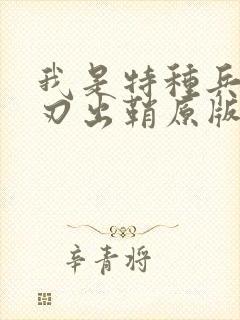 我是特種兵
刃出鞘原版
辛青将